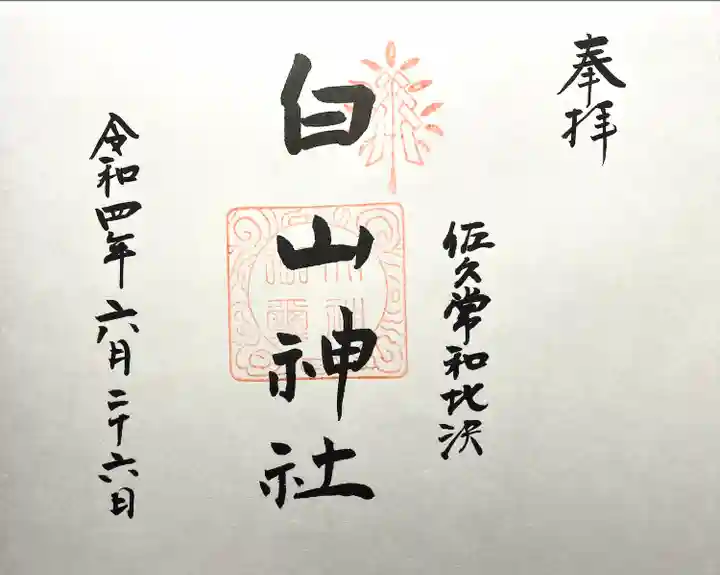 奉拝
佐久常和北沢
白山神社
令和四年六月二十六日